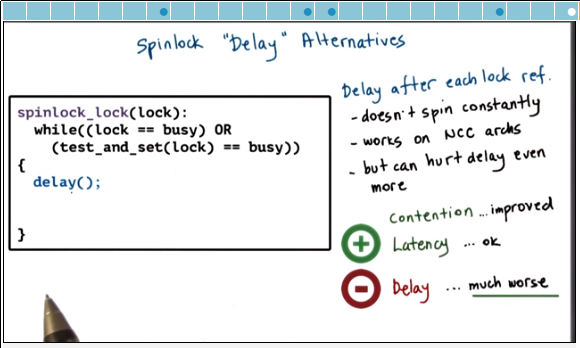 Spinlock "Delay" Alternatives
spinlock_lock(lock):
while((lock == busy) OR
(test_and_set(lock) == busy))
{
delay();
}
Delay after each lock ref.
- doesn't spin constantly
- works on NCC archs
- but can hurt delay even
more
contention ... improved
+ Latency ... ok
- Delay ... much worse